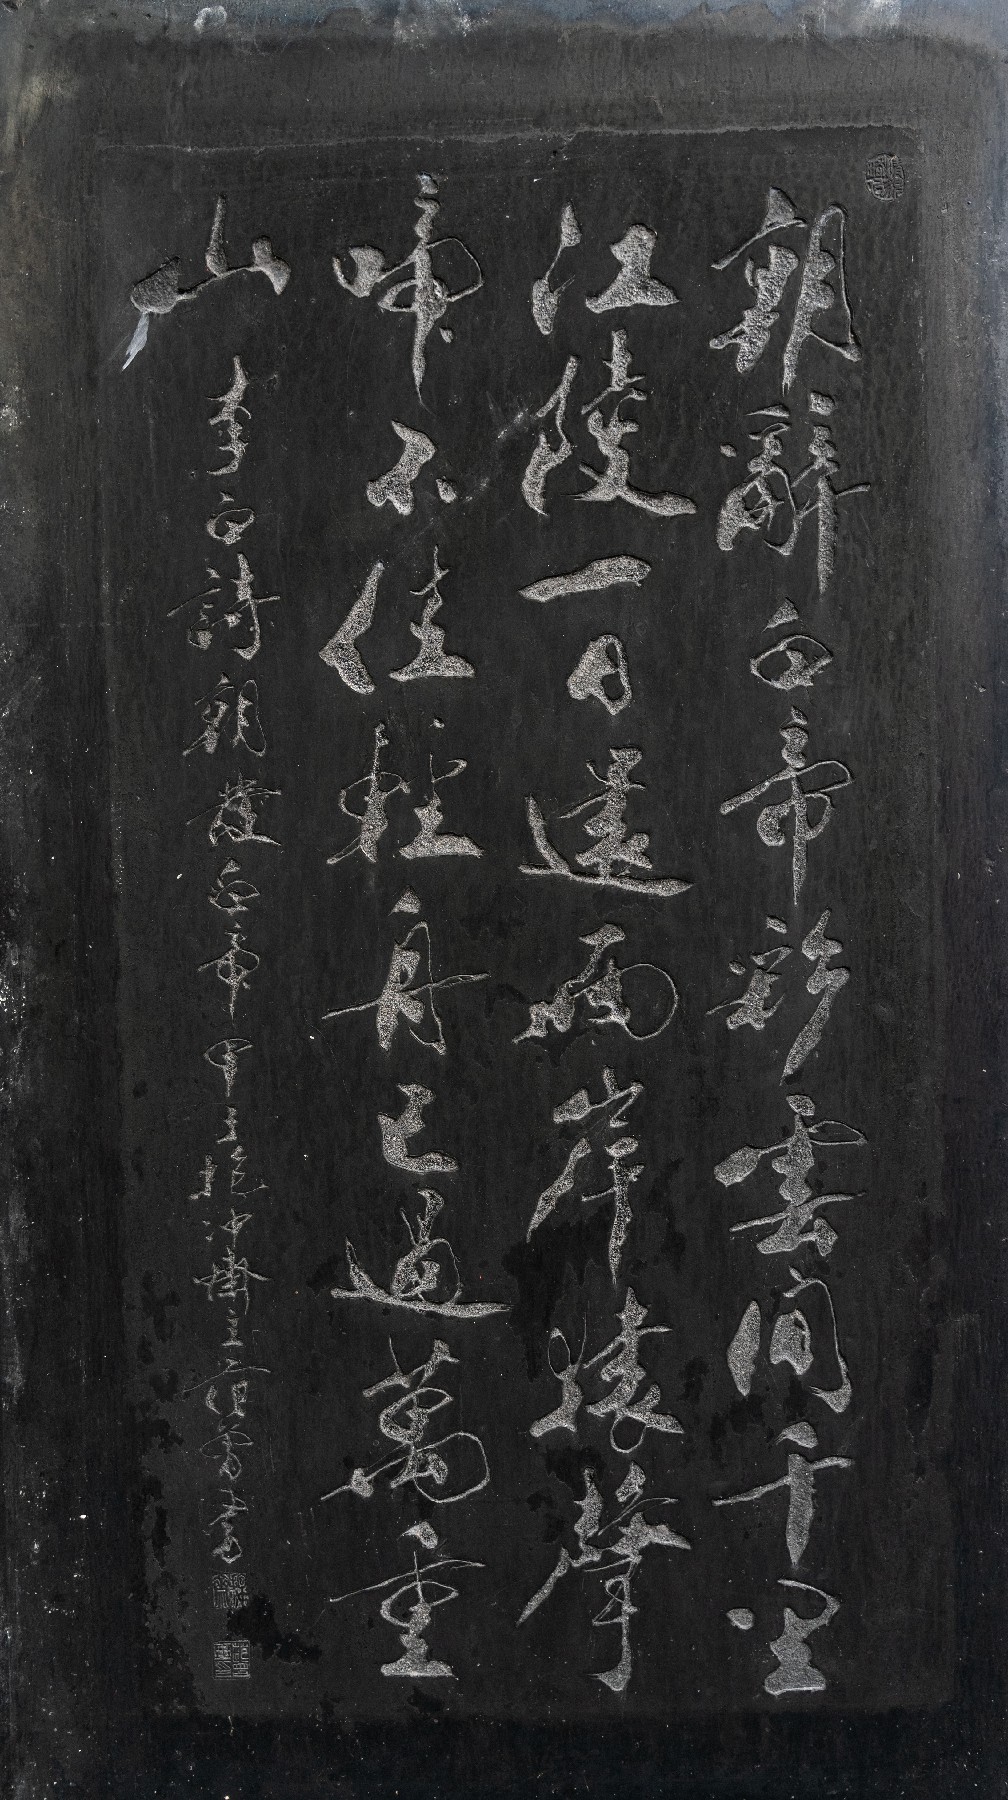 朝辭白帝彩雲間千里
江陵一日還兩岸猿聲
啼不住輕舟已過萬重
山
李白詩朝發白帝甲子